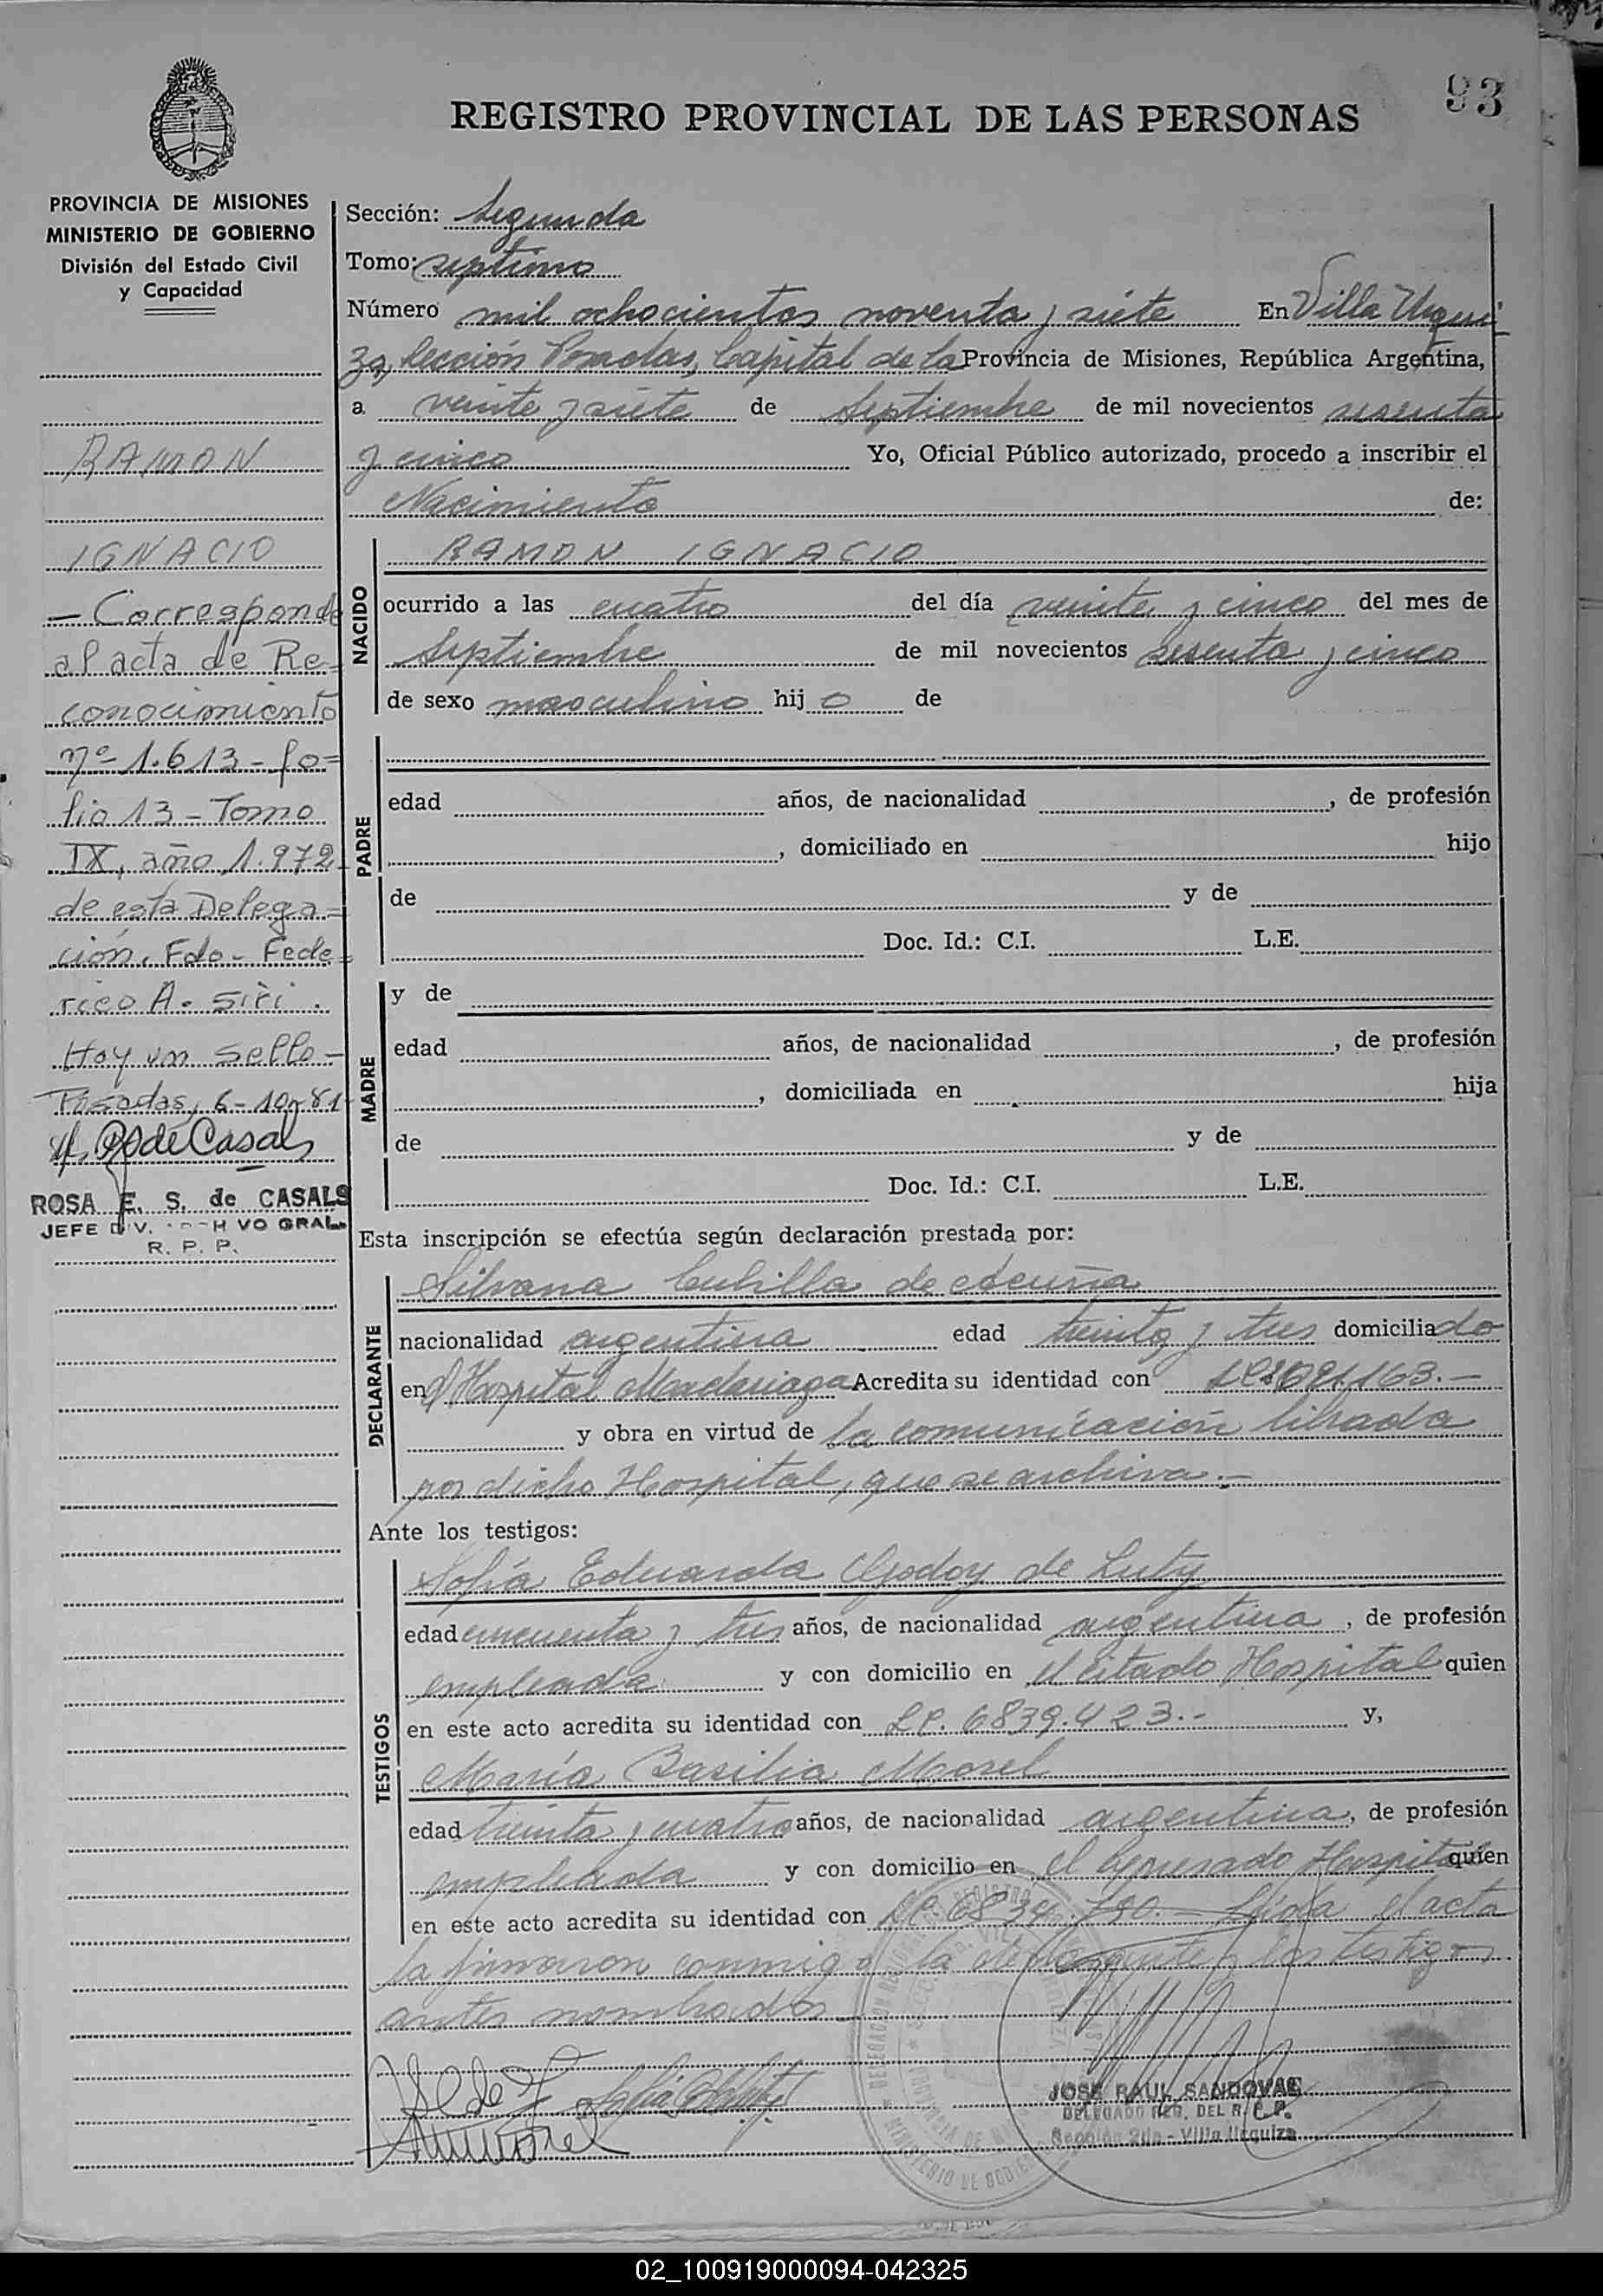 93
REGISTRO PROVINCIAL DE LAS PERSONAS
PROVINCIA DE MISIONES
MINISTERIO DE GOBIERNO
División del Estado Civil
y Capacidad
RAMON
IGNACIO
— Corresponde
al acta de Re=
conocimiento
nº 1.613 - fo=
lio 13 - Tomo
IX, año 1.972
de esta Delega=
ción. Fdo - Fede=
rico A. Siri.
Hay un Sello -
Posadas, 6-10-81
de Casals
ROSA E. S. de CASALS
JEFE DIV. VO GRAL.
R. P. P.
Sección: Segunda
Tomo: septimo
Número mil ochocientos noventa y siete En Villa Urqui
za, Sección Posadas, Capital de la Provincia de Misiones, República Argentina,
a veinte y siete de Septiembre de mil novecientos sesenta
y cinco Yo, Oficial Público autorizado, procedo a inscribir el
Nacimiento de:
NACIDO
RAMON IGNACIO
ocurrido a las cuatro del día veinte y cinco del mes de
Septiembre de mil novecientos sesenta y cinco
de sexo masculino hijo de
PADRE
edad años, de nacionalidad , de profesión
, domiciliado en hijo
de y de
Doc. Id.: C.I. L.E.
MADRE
y de
edad años, de nacionalidad , de profesión
, domiciliada en hija
de y de
Doc. Id.: C.I. L.E.
Esta inscripción se efectúa según declaración prestada por:
DECLARANTE
Silvana Cubilla de Acuña
nacionalidad argentina edad treinta y tres domiciliado
en el Hospital Madariaga Acredita su identidad con
y obra en virtud de la comunicación librada
por dicho Hospital, que se archiva.-
Ante los testigos:
TESTIGOS
Sofía Eduarda Godoy de Luty
edad cincuenta y tres años, de nacionalidad argentina , de profesión
empleada y con domicilio en el citado Hospital quien
en este acto acredita su identidad con LC. 6839.423.- y,
María Basilia Morel
edad treinta y cuatro años, de nacionalidad argentina, de profesión
empleada y con domicilio en el expresado Hospital quien
en este acto acredita su identidad con LC. 6834.790.- Leída el acta
la firmaron conmigo la declarante y los testigos
antes nombrados.
JOSE RAUL SANDOVAL
DELEGADO REG. DEL R. P. P.
Sección 2da - Villa Urquiza
02_100919000094-042325